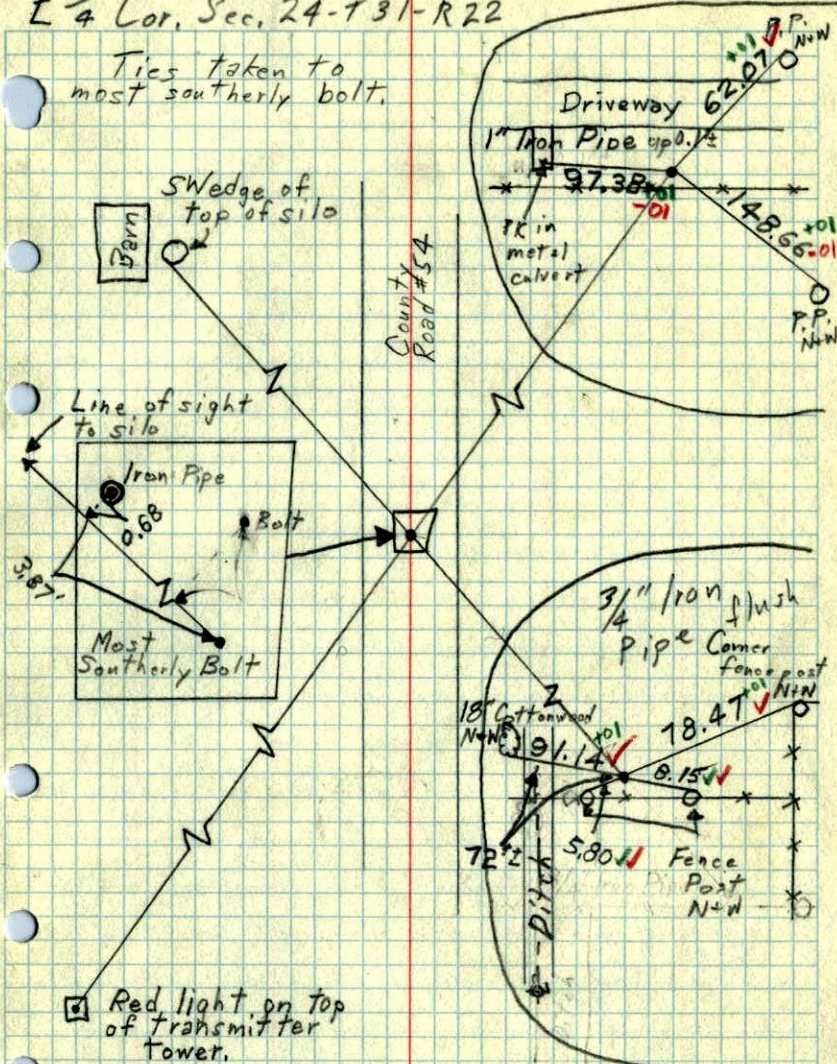 E 1/4 Cor. Sec. 24-T31-R22
Ties taken to
most southerly bolt.
P.P.
N+W
+01
62.07 ✓
Driveway
1" Iron Pipe up 0.1±
97.38
+01
-01
148.66
+01
-01
PK in
metal
culvert
P.P.
N+W
SWedge of
top of silo
Barn
County
Road #54
Line of sight
to silo
Iron Pipe
0.68
Bolt
3.87
Most
Southerly Bolt
3/4" Iron flush
Pipe
Corner
fence post
N+W
18" Cottonwood
N+W
+01
91.14 ✓
+01
78.47 ✓
8.15 ✓✓
72'±
5.80 ✓✓
Fence
Post
N+W
Ditch
Red light on top
of transmitter
tower.